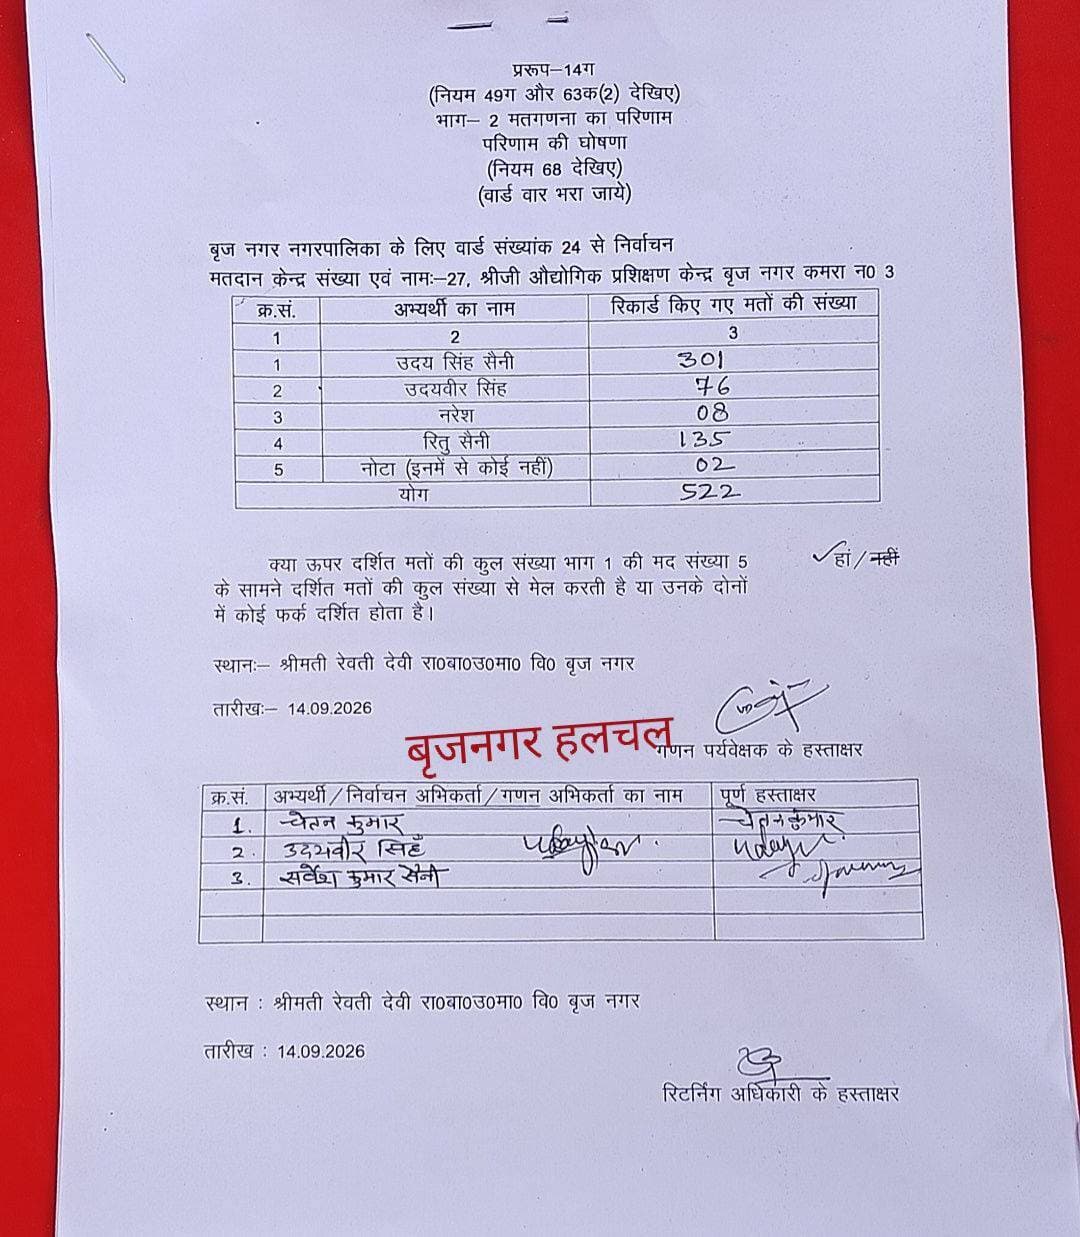 प्ररूप–14ग
(नियम 49ग और 63क(2) देखिए)
भाग– 2 मतगणना का परिणाम
परिणाम की घोषणा
(नियम 68 देखिए)
(वार्ड वार भरा जाये)
बृज नगर नगरपालिका के लिए वार्ड संख्यांक 24 से निर्वाचन
मतदान केन्द्र संख्या एवं नामः–27, श्रीजी औद्योगिक प्रशिक्षण केन्द्र बृज नगर कमरा न0 3
क्र.सं. अभ्यर्थी का नाम रिकार्ड किए गए मतों की संख्या
1 2 3
1 उदय सिंह सैनी 301
2 उदयवीर सिंह 76
3 नरेश 08
4 रितु सैनी 135
5 नोटा (इनमें से कोई नहीं) 02
योग 522
क्या ऊपर दर्शित मतों की कुल संख्या भाग 1 की मद संख्या 5 हां/नहीं
के सामने दर्शित मतों की कुल संख्या से मेल करती है या उनके दोनों
में कोई फर्क दर्शित होता है।
स्थानः– श्रीमती रेवती देवी रा0बा0उ0मा0 वि0 बृज नगर
तारीखः– 14.09.2026
बृजनगर हलचल
गणन पर्यवेक्षक के हस्ताक्षर
क्र.सं. अभ्यर्थी/निर्वाचन अभिकर्ता/गणन अभिकर्ता का नाम पूर्ण हस्ताक्षर
1. चेतन कुमार चेतन कुमार
2. उदयवीर सिंह
3. सर्वेश कुमार सैनी
स्थान : श्रीमती रेवती देवी रा0बा0उ0मा0 वि0 बृज नगर
तारीख : 14.09.2026
रिटर्निंग अधिकारी के हस्ताक्षर